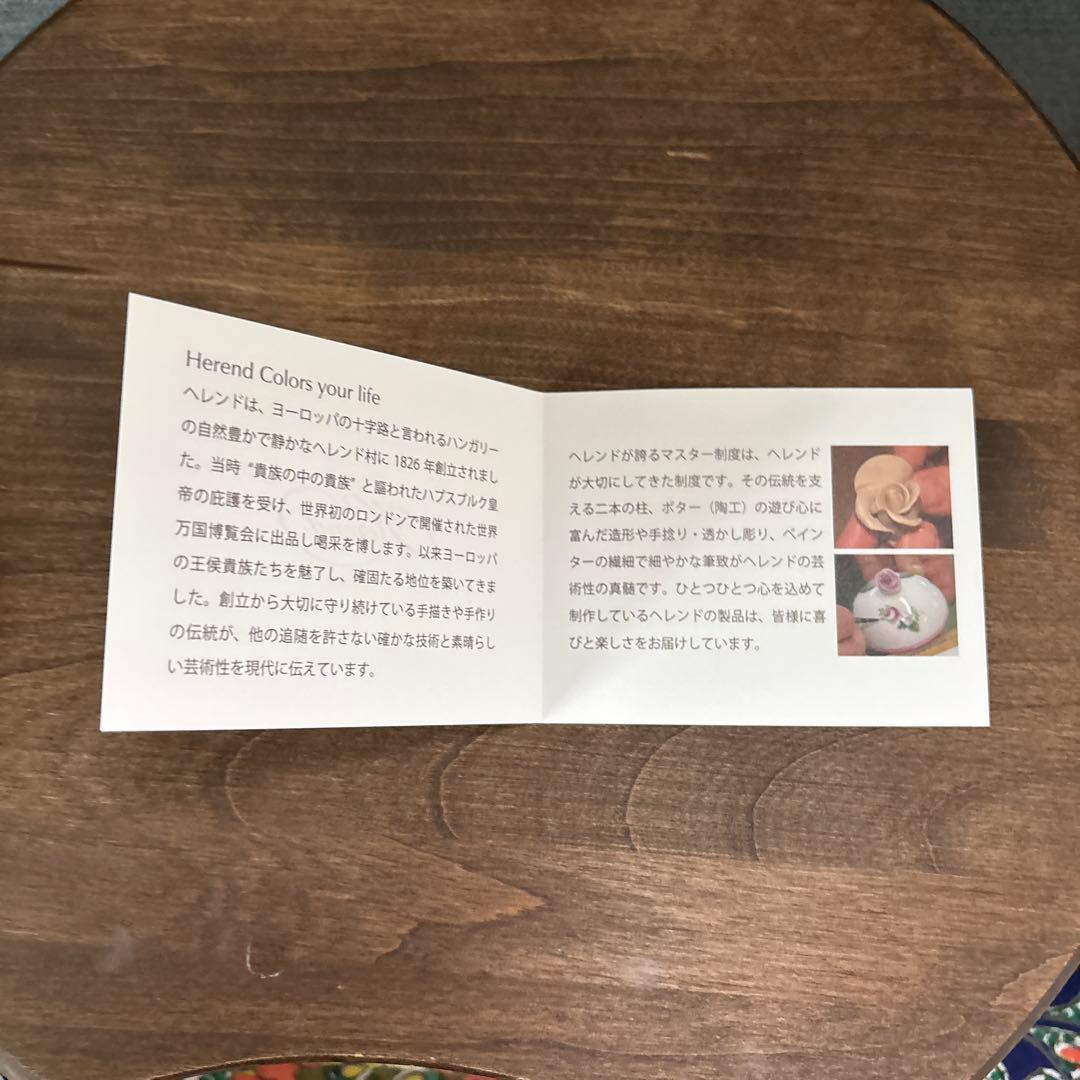 Herend Colors your life
ヘレンドは、ヨーロッパの十字路と言われるハンガリー
の自然豊かで静かなヘレンド村に 1826 年創立されまし
た。当時 “貴族の中の貴族” と謳われたハプスブルク皇
帝の庇護を受け、世界初のロンドンで開催された世界
万国博覧会に出品し喝采を博します。以来ヨーロッパ
の王侯貴族たちを魅了し、確固たる地位を築いてきま
した。創立から大切に守り続けている手描きや手作り
の伝統が、他の追随を許さない確かな技術と素晴らし
い芸術性を現代に伝えています。
ヘレンドが誇るマスター制度は、ヘレンド
が大切にしてきた制度です。その伝統を支
える二本の柱、ポター（陶工）の遊び心に
富んだ造形や手捻り・透かし彫り、ペイン
ターの繊細で細やかな筆致がヘレンドの芸
術性の真髄です。ひとつひとつ心を込めて
制作しているヘレンドの製品は、皆様に喜
びと楽しさをお届けしています。